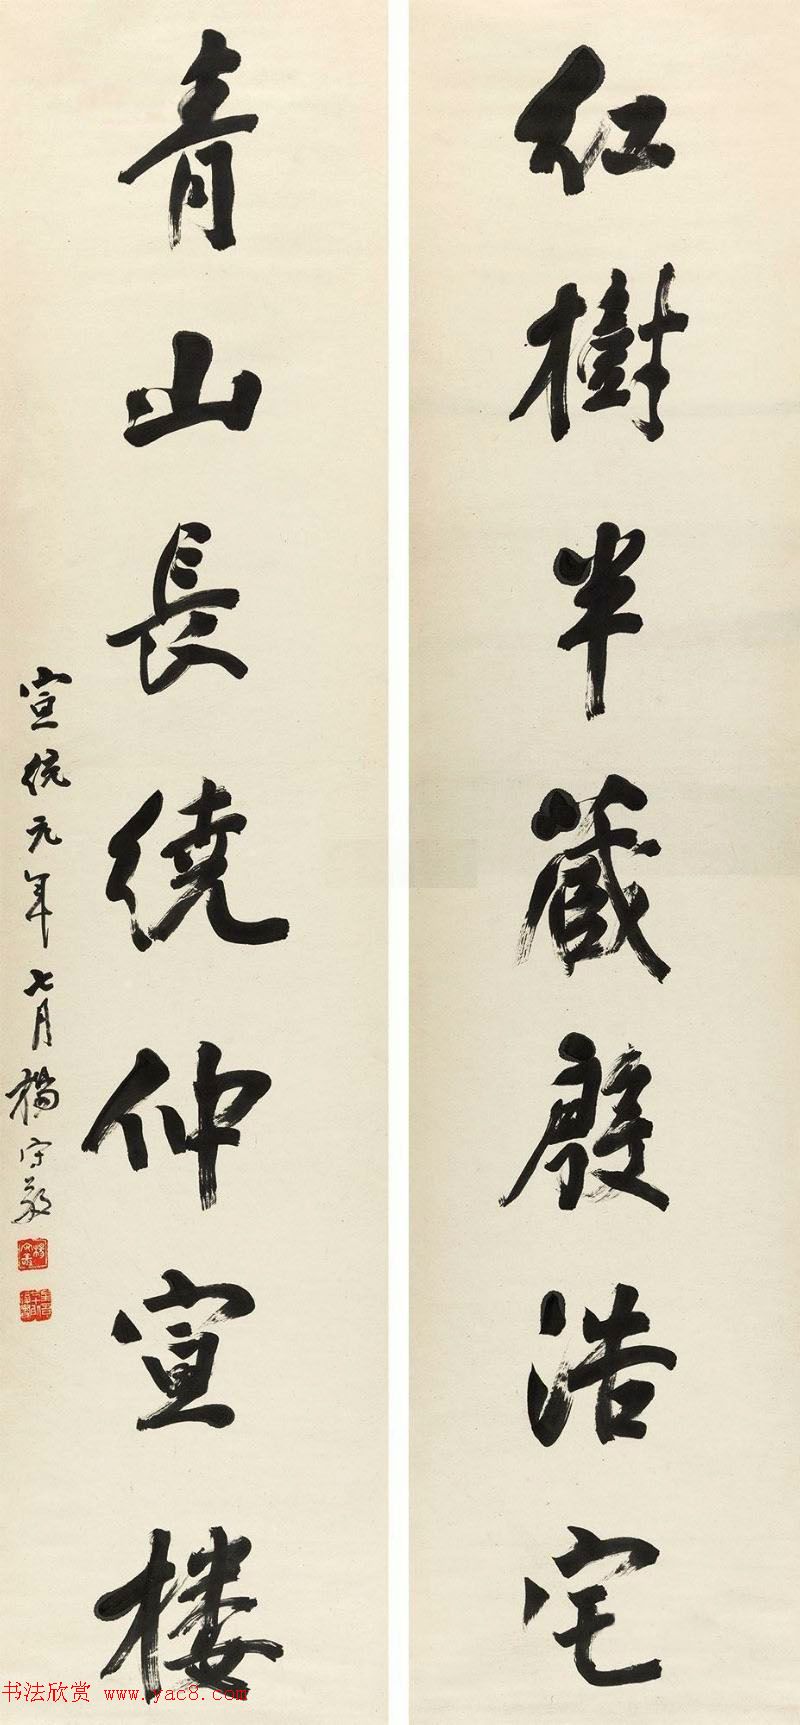 红樹半藏殷浩宅
青山長繞仲宣楼
宣統元年七月楊守敬
书法欣赏 www.yac8.com